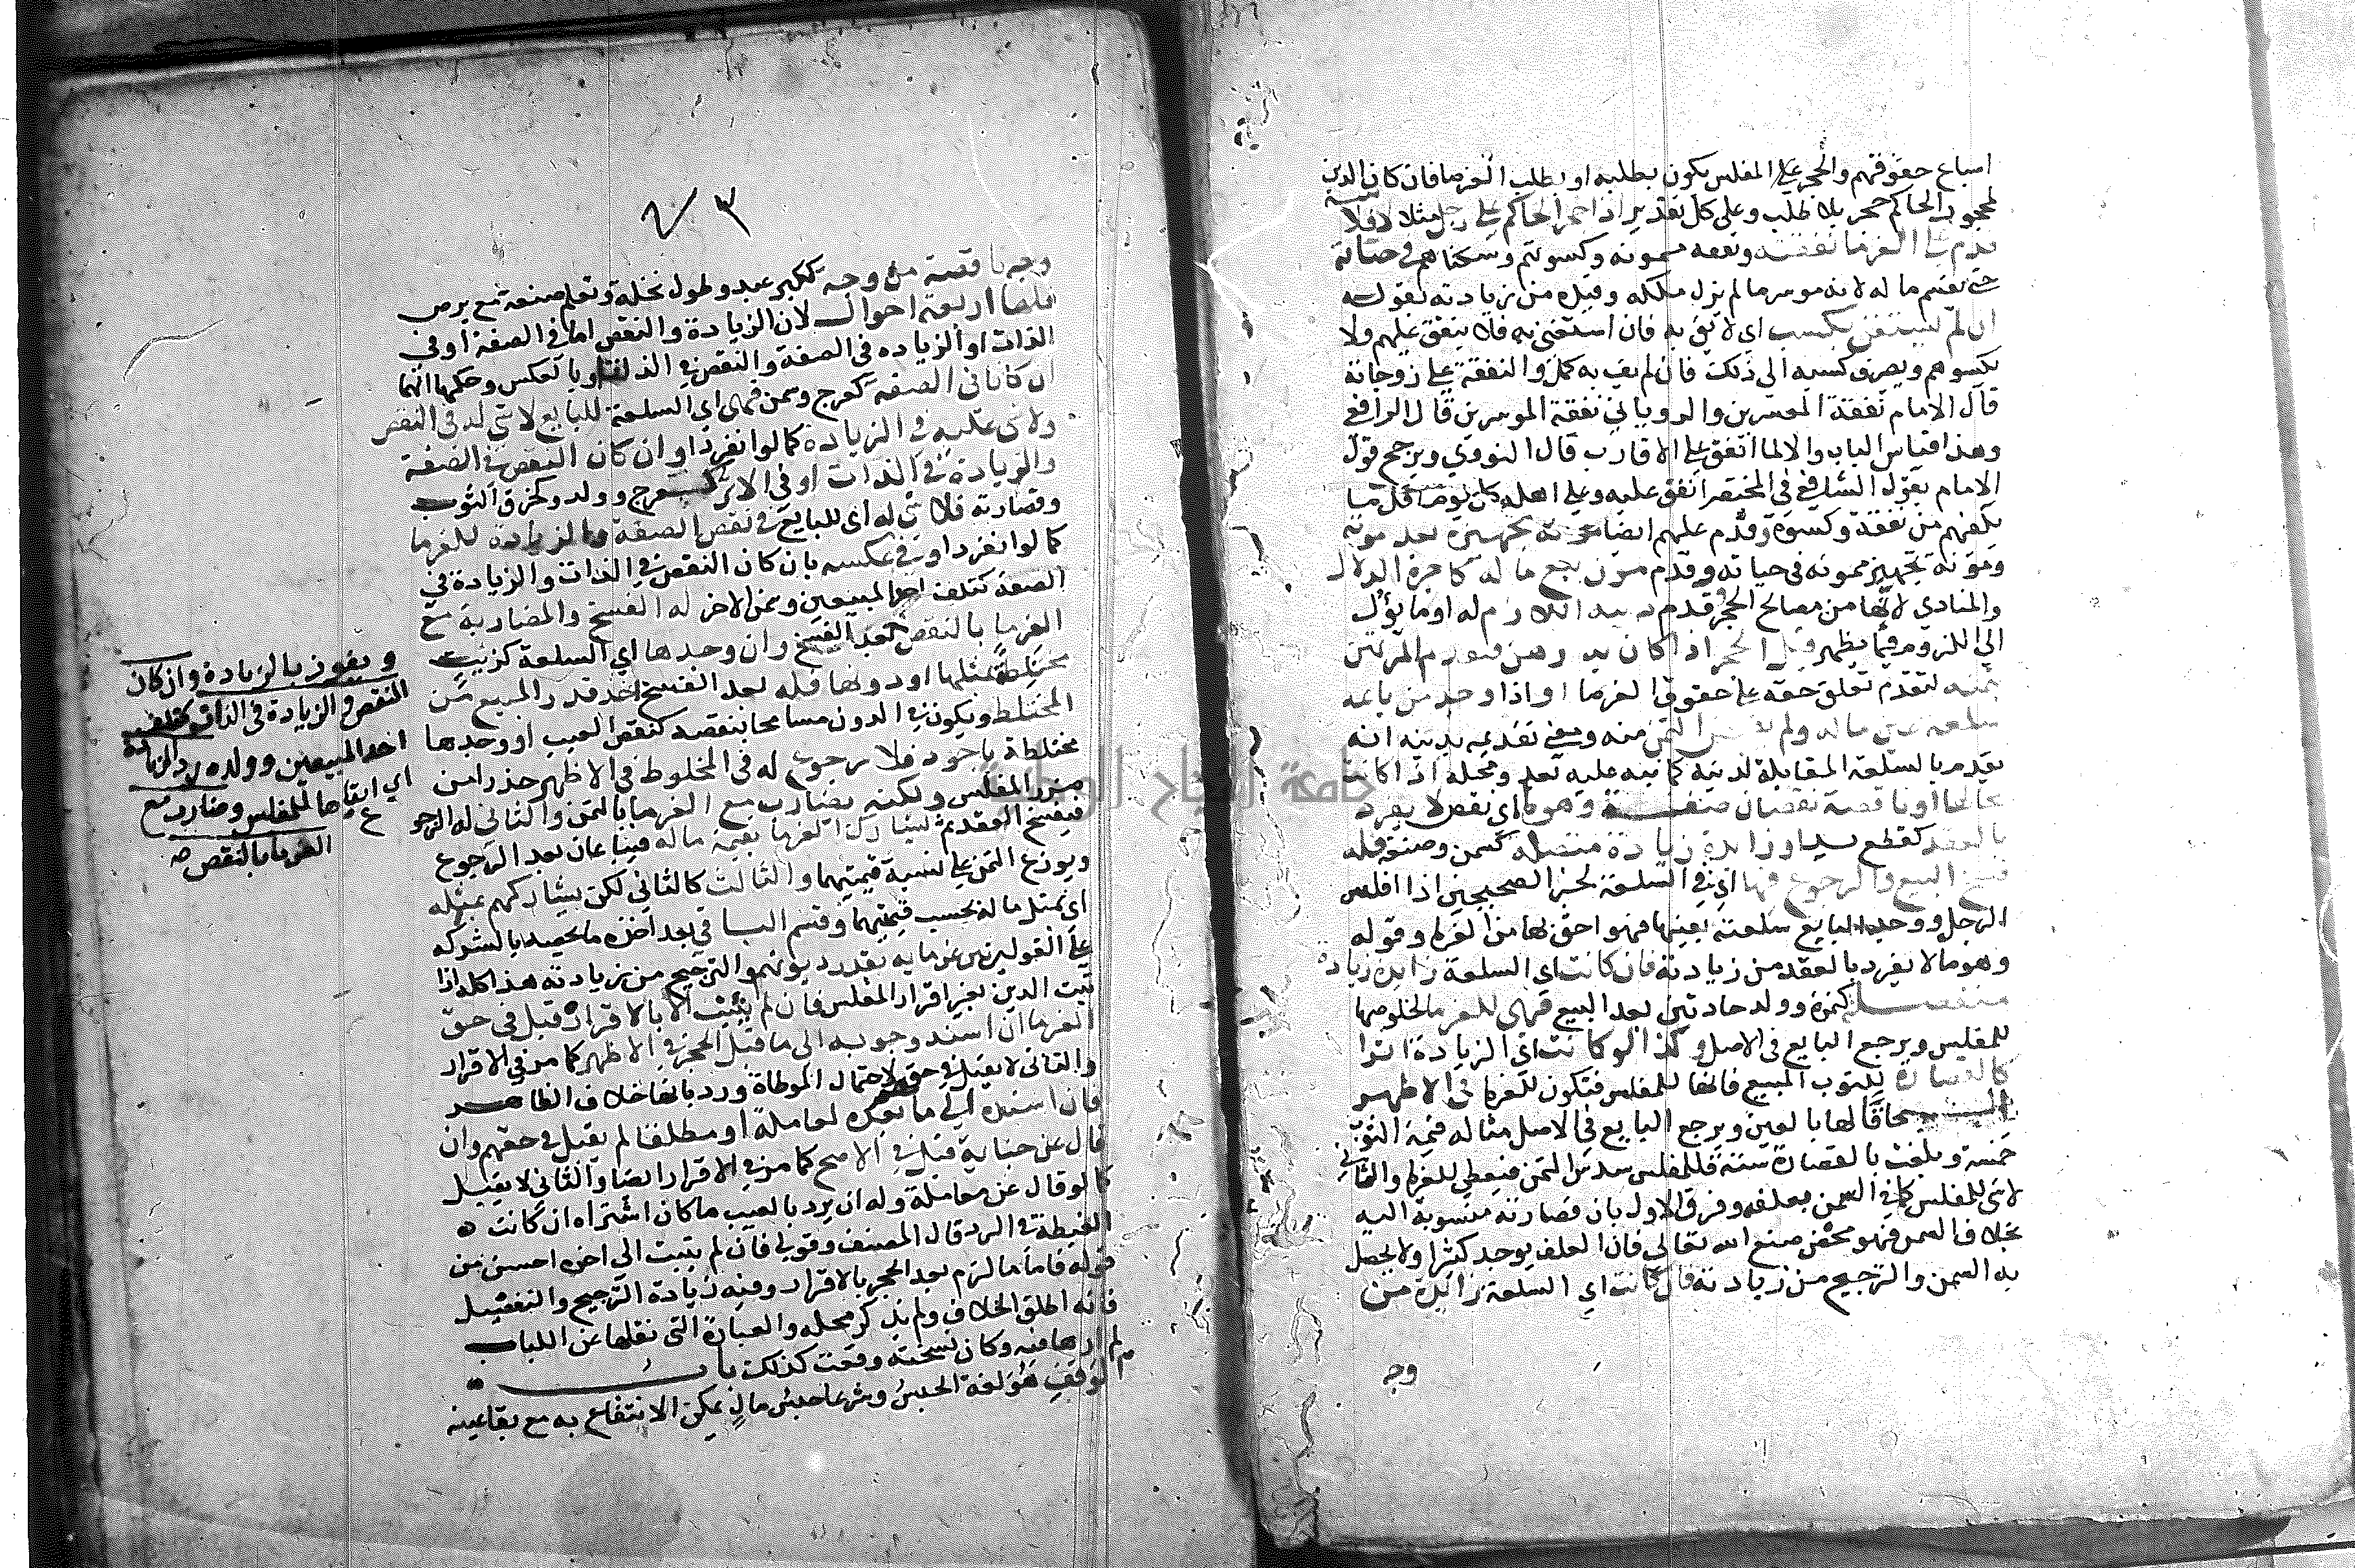 اسباع حقوقهم والحجر على المفلس يكون بطلبه او بطلب الغرما فان كان الدين
لمحجور الحاكم حجر بلا طلب وعلى كل تقدير اذا حجر الحاكم على رجل مثلا
قدم على الغرما نفقته ونفقه ممونه وكسوتهم وسكناهم في حياته
حتى يقسم ماله لانه موسر ما لم يزل ملكه وقيده من زيادته بقوله
ان لم يستغن بكسب اي لائق به فان استغنى به فلا ينفق عليهم ولا
يكسوهم ويصرف كسبه الى ذلك فان لم يف به كمل والنفقة على زوجاته
قال الامام نفقة المعسرين والروياني نفقة الموسرين قال الرافعي
وهذا قياس الباب والا لما انفق على الاقارب قال النووي ويرجح قول
الامام بقول الشافعي في المختصر انفق عليه وعلى اهله كل يوم اقل ما
يكفيهم من نفقة وكسوة وقدم عليهم ايضا مونة تجهيزه بعد موته
ومونة تجهيز ممونه في حياته وقدم مون بيع ماله كاجرة الدلال
والمنادي لانها من مصالح الحجر وقدم دينه اللازم له او ما يؤل
الى اللزوم فيما يظهر قبل الحجر اذا كان به رهن فيقدم المرتهن
بثمنه لتقدم تعلق حقه على حقوق الغرما او اذا وجد من باعه
سلعه عين ماله ولم يقبض الثمن منه ومعنى تقديمه بدينه انه
يقدم بالسلعة المقابلة لدينه كما نبه عليه بعد ومحله اذا كانت
بحالها او ناقصة نقصان صفة وهو اي نقص لا يفرد
بالعقد كقطع يد او زايدة زيادة متصلة كسمن وصنعة فله
فسخ البيع والرجوع فيها اي في السلعة لخبر الصحيحين اذا افلس
الرجل ووجد البايع سلعته بعينها فهو احق بها من الغرما وقوله
وهو ما لا يفرد بالعقد من زيادته فان كانت اي السلعة زايدة زيادة
منفصلة كثمرة وولد حادثين بعد البيع فهي للغرما لخلوصها
للمفلس ويرجع البايع في الاصل وكذا لو كانت اي الزيادة اثرا
كالقصارة للثوب المبيع فانها للمفلس فتكون للغرما في الاظهر
الحاقا لها بالعين ويرجع البايع في الاصل مثاله قيمة الثوب
خمسة وبلغت بالقصارة ستة فللمفلس سدس الثمن فيعطى للغرما والثاني
لا شي للمفلس كما في السمن بعلفه وفرق الاول بان قصارته منسوبة اليه
بخلاف السمن فهو محض صنع الله تعالى فان العلف يوجد كثيرا ولا يحصل
به السمن والترجيح من زيادته فان كانت اي السلعة زائدة من
وجه
٧٣
وجه ناقصة من وجه ككبر عبد وطول نخلة وتعلم صنعة مع برص
فلها اربعة احوال لان الزيادة والنقص اما في الصفة او في
الذات او الزياده في الصفة والنقص في الذات او بالعكس وحكمها انهما
ان كانا في الصفة كعرج وسمن فهي اي السلعة للبايع لا شي له في النقص
ولا شي عليه في الزيادة كما لو انفردا وان كان النقص في الصفة
والزيادة في الذات او في الاثر كعرج وولد وكخرق الثوب
وقصارته فلا شي له اي للبايع في نقص الصفة والزيادة للغرما
كما لو انفردا وفي عكسه بان كان النقص في الذات والزيادة في
الصفة كتلف احد المبيعين وسمن الاخر له الفسخ والمضاربة مع
الغرما بالنقص بعد الفسخ وان وجدها اي السلعة كزيت
مختلطة بمثلها او دونها فله بعد الفسخ اخذ قدر المبيع من
المختلط ويكون في الدون مسامحا بنقصه كنقص العيب او وجدها
مختلطة باجود فلا رجوع له في المخلوط في الاظهر حذرا من
ضرر المفلس ولكنه يضارب مع الغرما بالثمن والثاني له الرجوع
فيفسخ العقد ثم يشارك الغرما بقيمة ماله فيباعان بعد الرجوع
ويوزع الثمن على نسبة قيمتيهما والثالث كالثاني لكن يشاركهم بمثله
اي بمثل ماله بحسب قيمتيهما وقسم الباقي بعد اخذه ما يخصه بالشركة
على القولين بين غرمايه بقدر ديونهم والترجيح من زيادته هذا كله اذا
ثبت الدين بغير اقرار المفلس فان لم يثبت الا بالاقرار قبل في حق
الغرما ان اسند وجوبه الى ما قبل الحجر في الاظهر كما مر في الاقرار
والثاني لا يقبل في حقهم لاحتمال المواطاة ورد بانها خلاف الظاهر
فان اسنده الى ما بعده لمعاملة او مطلقا لم يقبل في حقهم وان
قال عن جناية قبل في الاصح كما مر في الاقرار ايضا والثاني لا يقبل
كما لو قال عن معاملة وله ان يرد بالعيب ما كان اشتراه ان كانت
الغبطة في الرد قال المصنف وقولي فان لم يثبت الى اخره احسن من
قوله فاما ما لزم بعد الحجر بالاقرار وفيه زيادة الترجيح والتفصيل
فانه اطلق الخلاف ولم يذكر محله والعبارة التي نقلها عن اللباب
لم ارها فيه وكان نسخته وقعت كذلك باب
الوقف هو لغة الحبس وشرعا حبس مال يمكن الانتفاع به مع بقا عينه
ويفوز بالزيادة وان كان
النقص والزيادة في الذات كتلف
احد المبيعين وولده رد الزيادة
اي ابقاها للمفلس وضارب مع
الغرما بالنقص صح